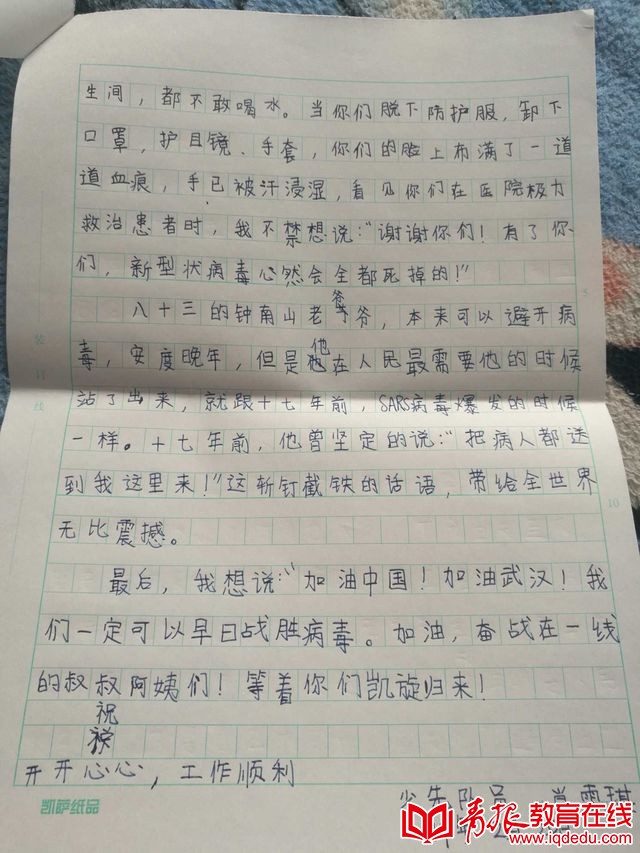 生间，都不敢喝水。当你们脱下防护服，卸下
口罩，护目镜、手套，你们的脸上布满了一道
道血痕，手已被汗浸湿，看见你们在医院极力
救治患者时，我不禁想说：“谢谢你们！有了你
们，新型状病毒心然会全都死掉的！”
八十三的钟南山老爷爷，本来可以避开病
毒，安度晚年，但是他在人民最需要他的时候
站了出来，就跟十七年前，SARS病毒爆发的时候
一样。十七年前，他曾坚定的说：“把病人都送
到我这里来！”这斩钉截铁的话语，带给全世界
无比震撼。
最后，我想说：“加油中国！加油武汉！我
们一定可以早日战胜病毒。加油，奋战在一线
的叔叔阿姨们！等着你们凯旋归来！
祝
开开心心，工作顺利
少先队员 肖雨琪
凯萨纸品
装订线
5
10
青报教育在线
www.iqdedu.com